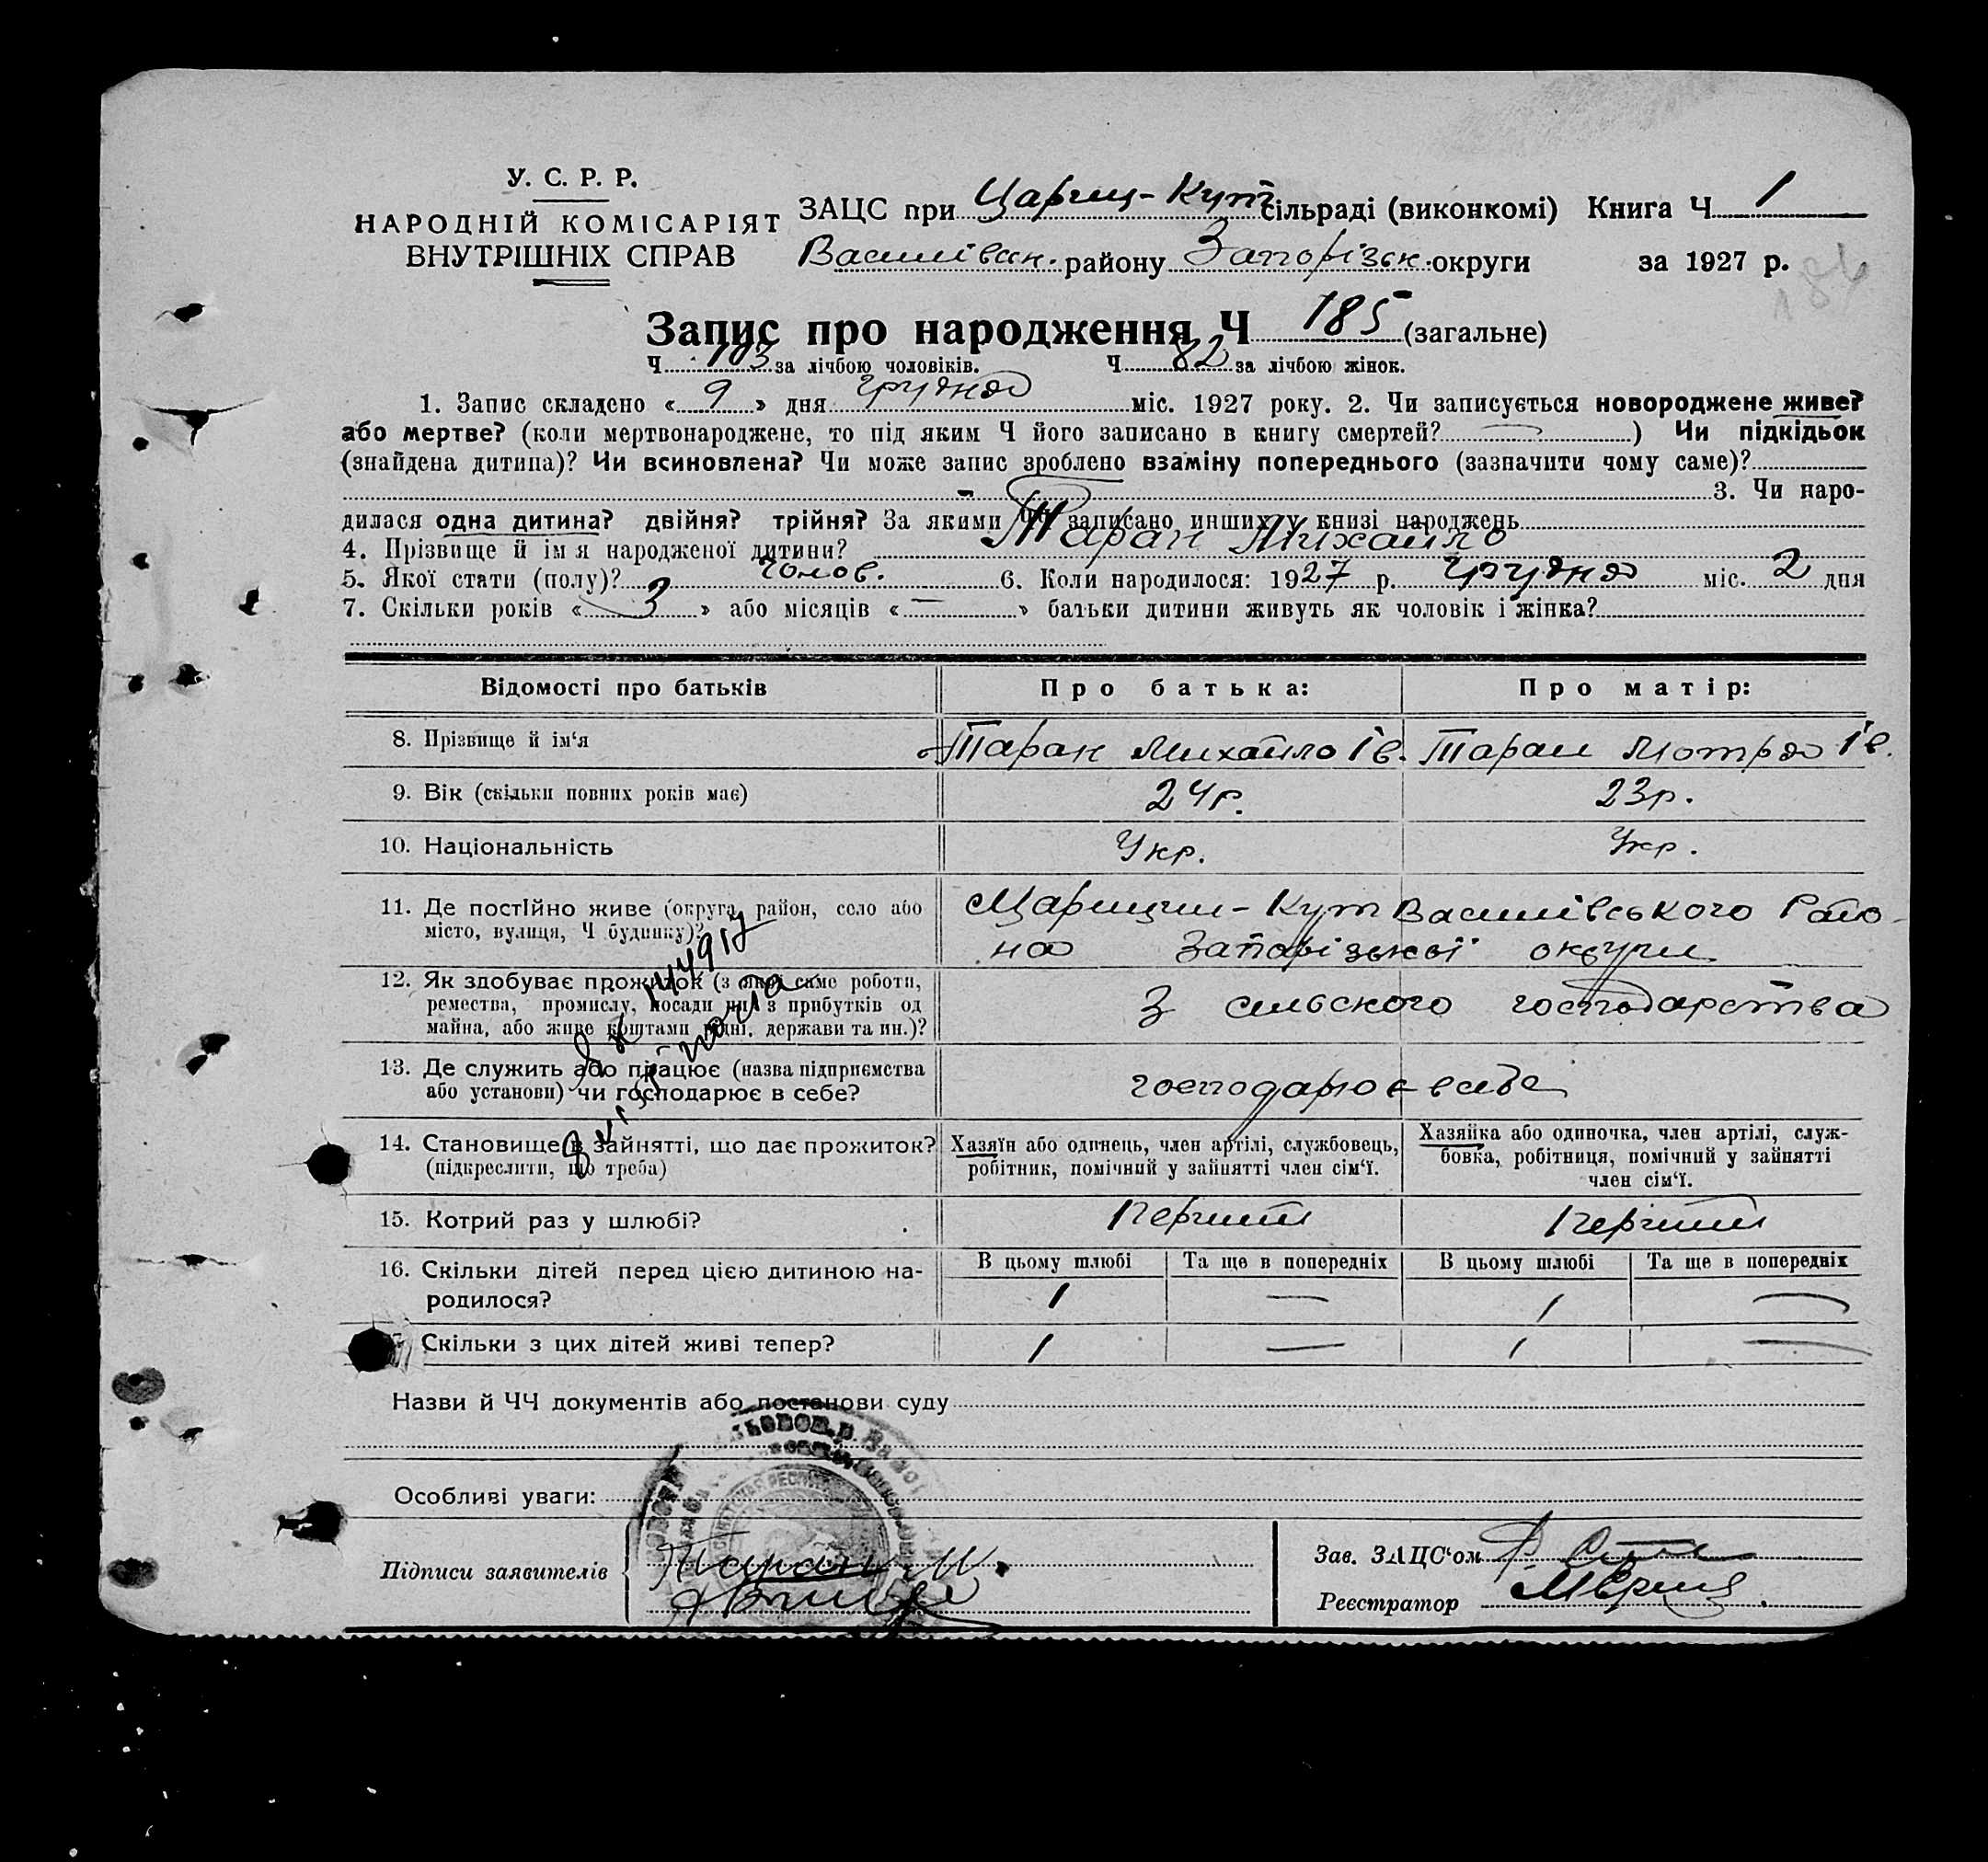 У. С. Р. Р.
НАРОДНІЙ КОМІСАРІЯТ
ВНУТРІШНІХ СПРАВ
ЗАЦС при Цариц-Кут сільраді (виконкомі) Книга Ч 1
Василівськ. району Запорізьк. округи за 1927 р.
184
Запис про народження Ч 185 (загальне)
Ч 103 за лічбою чоловіків. Ч 82 за лічбою жінок.
1. Запис складено « 9 » дня грудня міс. 1927 року. 2. Чи записується новороджене живе?
або мертве? (коли мертвонароджене, то під яким Ч його записано в книгу смертей? — ) Чи підкідьок
(знайдена дитина)? Чи всиновлена? Чи може запис зроблено взаміну попереднього (зазначити чому саме)?
3. Чи наро-
дилася одна дитина? двійня? трійня? За якими ЧЧ записано инших у книзі народжень
4. Прізвище й ім я народженої дитини? Таран Михайло
5. Якої стати (полу)? чолов. 6. Коли народилося: 1927 р. грудня міс. 2 дня
7. Скільки років « 3 » або місяців « — » батьки дитини живуть як чоловік і жінка?
Відомості про батьків Про батька: Про матір:
8. Прізвище й ім‘я Таран Михайло Ів. Таран Мотря Ів.
9. Вік (скільки повних років має) 24р. 23р.
10. Національність Укр. Укр.
11. Де постійно живе (округа, район, село або Царицин-Кут Василівського Райо-
місто, вулиця, Ч будинку)? на Запорізької округи
12. Як здобуває прожиток (з якої саме роботи,
ремества, промислу, посади чи з прибутків од З сільского господарства
майна, або живе коштами рідні, держави та ин.)?
13. Де служить або працює (назва підприємства
або установи) чи господарює в себе? господарює в себе
14. Становище в зайнятті, що дає прожиток? Хазяїн або одинець, член артілі, службовець, Хазяйка або одиночка, член артілі, служ-
(підкреслити, що треба) робітник, помічний у зайнятті член сім‘ї. бовка, робітниця, помічний у зайнятті
член сім‘ї.
15. Котрий раз у шлюбі? Перший Перший
16. Скільки дітей перед цією дитиною на- В цьому шлюбі Та ще в попередніх В цьому шлюбі Та ще в попередніх
родилося? 1 — 1 —
Скільки з цих дітей живі тепер? 1 — 1 —
Назви й ЧЧ документів або постанови суду
Особливі уваги:
Підписи заявителів Таран М.
Зав. ЗАЦС‘ом
Реєстратор